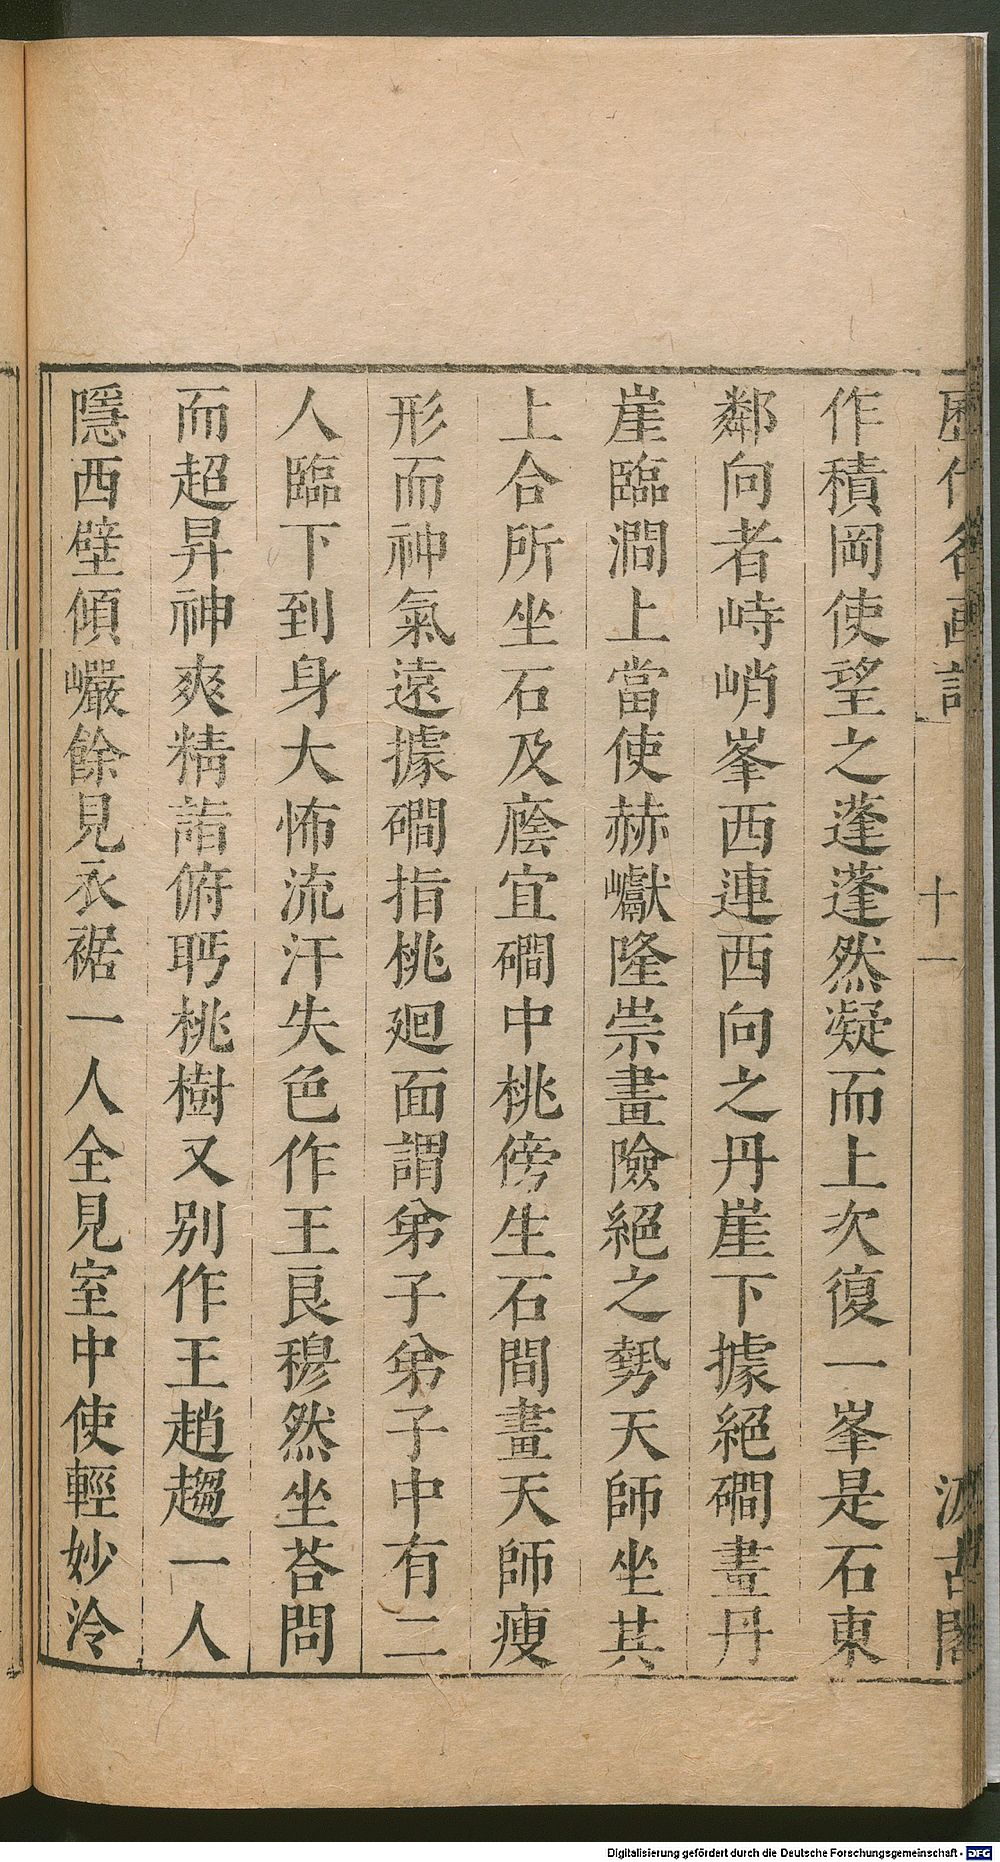 歷代名畫記
十一
汲古閣
作積岡使望之蓬蓬然凝而上次復一峯是石東
鄰向者峙峭峯西連西向之丹崖下據絕磵畫丹
崖臨澗上當使赫巘隆崇畫險絕之勢天師坐其
上合所坐石及廕宜磵中桃傍生石間畫天師瘦
形而神氣遠據磵指桃廻面謂弟子弟子中有二
人臨下到身大怖流汗失色作王良穆然坐荅問
而超昇神爽精詣俯眄桃樹又别作王趙趨一人
隱西壁傾巖餘見衣裾一人全見室中使輕妙泠
Digitalisierung gefördert durch die Deutsche Forschungsgemeinschaft - DFG